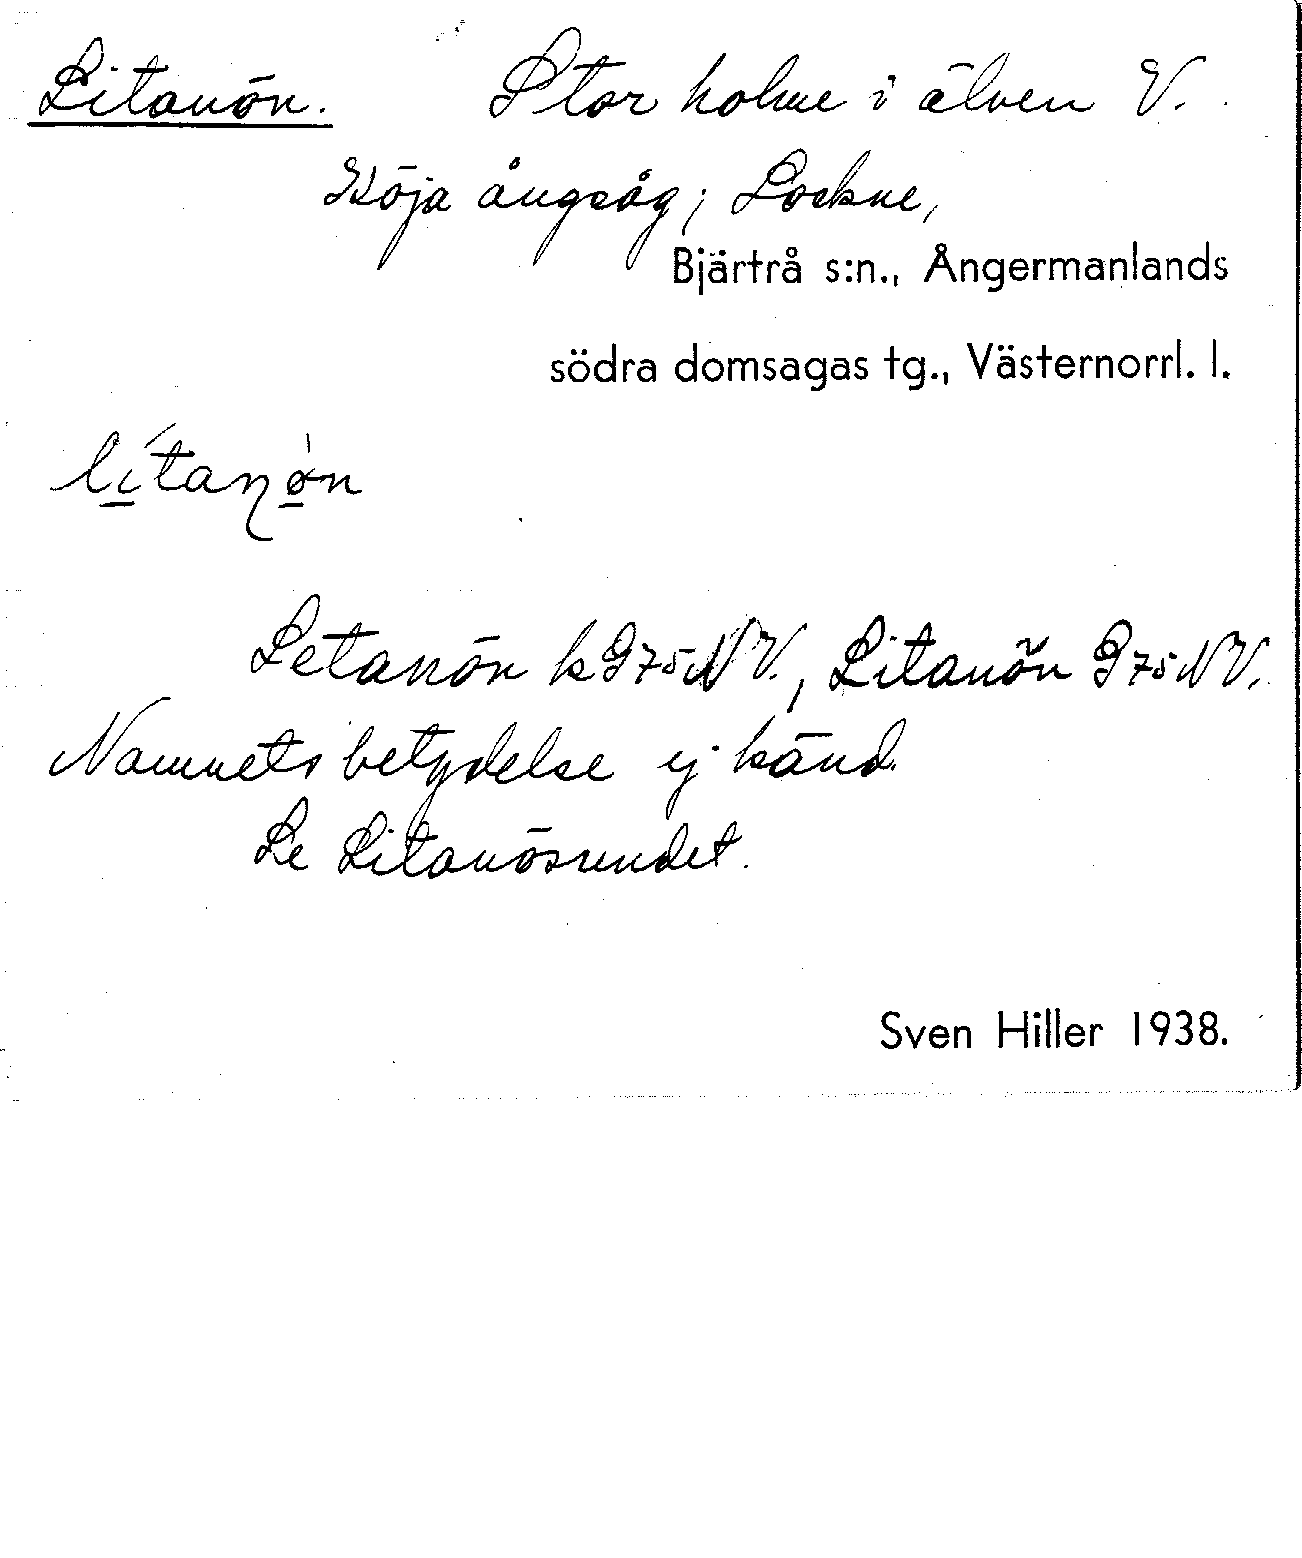 Litanön. Stor holme i älven V.
Köja ångsåg; Lockne,
Bjärtrå s:n., Ångermanlands
södra domsagas tg., Västernorrl. l.
lítanǿn
Letanön k G75NV., Litanön G75NV.
Namnets betydelse ej känd.
Se Litanösundet.
Sven Hiller 1938.